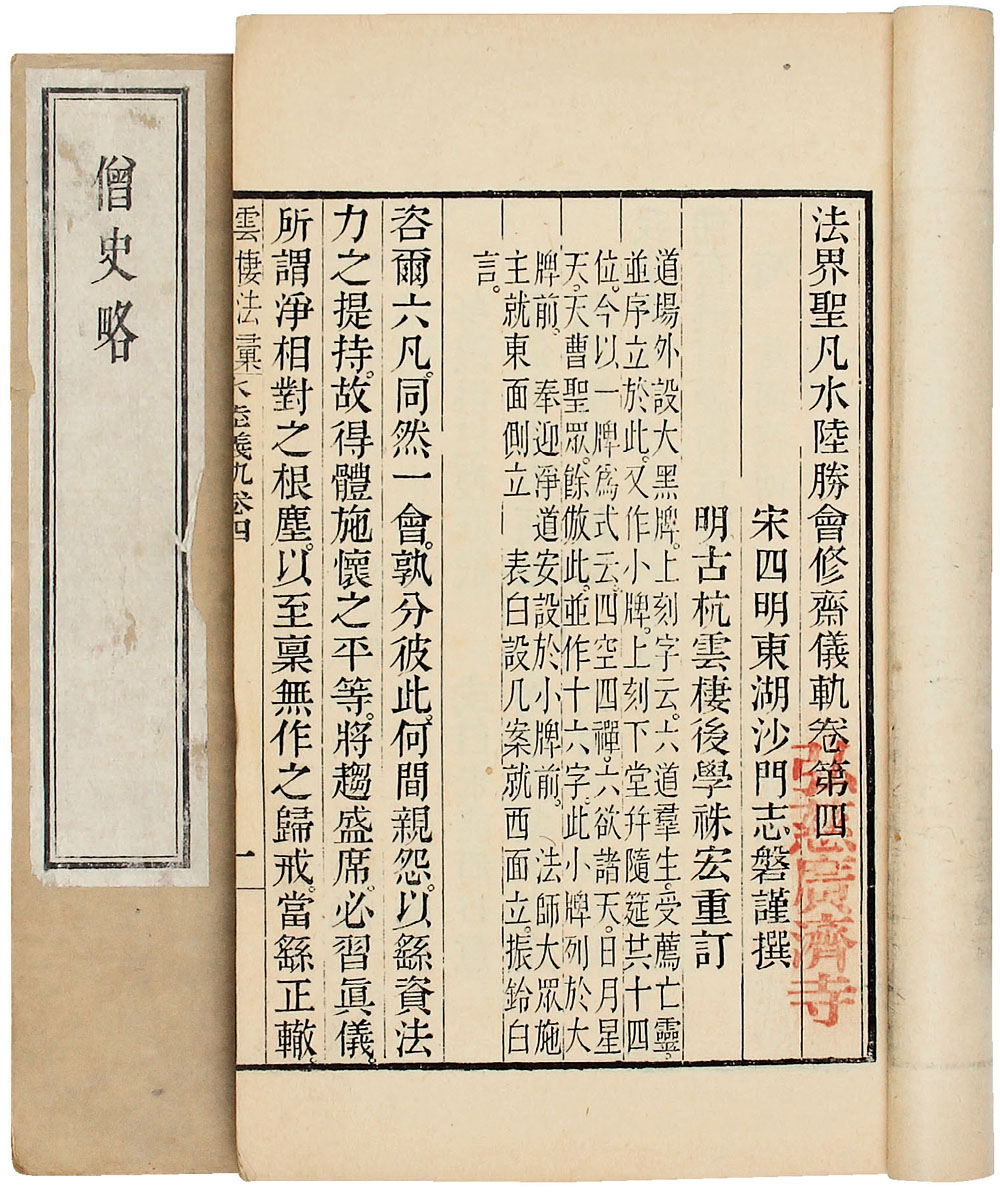 法界聖凡水陸勝會修齋儀軌卷第四
弘慈廣濟寺
宋四明東湖沙門志磐謹撰
明古杭雲棲後學袾宏重訂
道場外設大黑牌。上刻字云。六道羣生。受薦亡靈。
並序立於此。又作小牌。上刻下堂幷隨筵共十四
位。今以一牌爲式云。四空四禪。六欲諸天。日月星
天。天曹聖眾。餘倣此。並作十六字。此小牌列於大
牌前。 奉迎淨道安設於小牌前。 法師大眾施
主就東面側立 表白設几案就西面立。振鈴白
言。
咨爾六凡。同然一會。孰分彼此。何間親怨。以繇資法
力之提持。故得體施懷之平等。將趨盛席。必習眞儀。
所謂淨相對之根塵。以至稟無作之歸戒。當繇正轍。
雲棲法彙 水陸儀軌卷四 一
僧史略